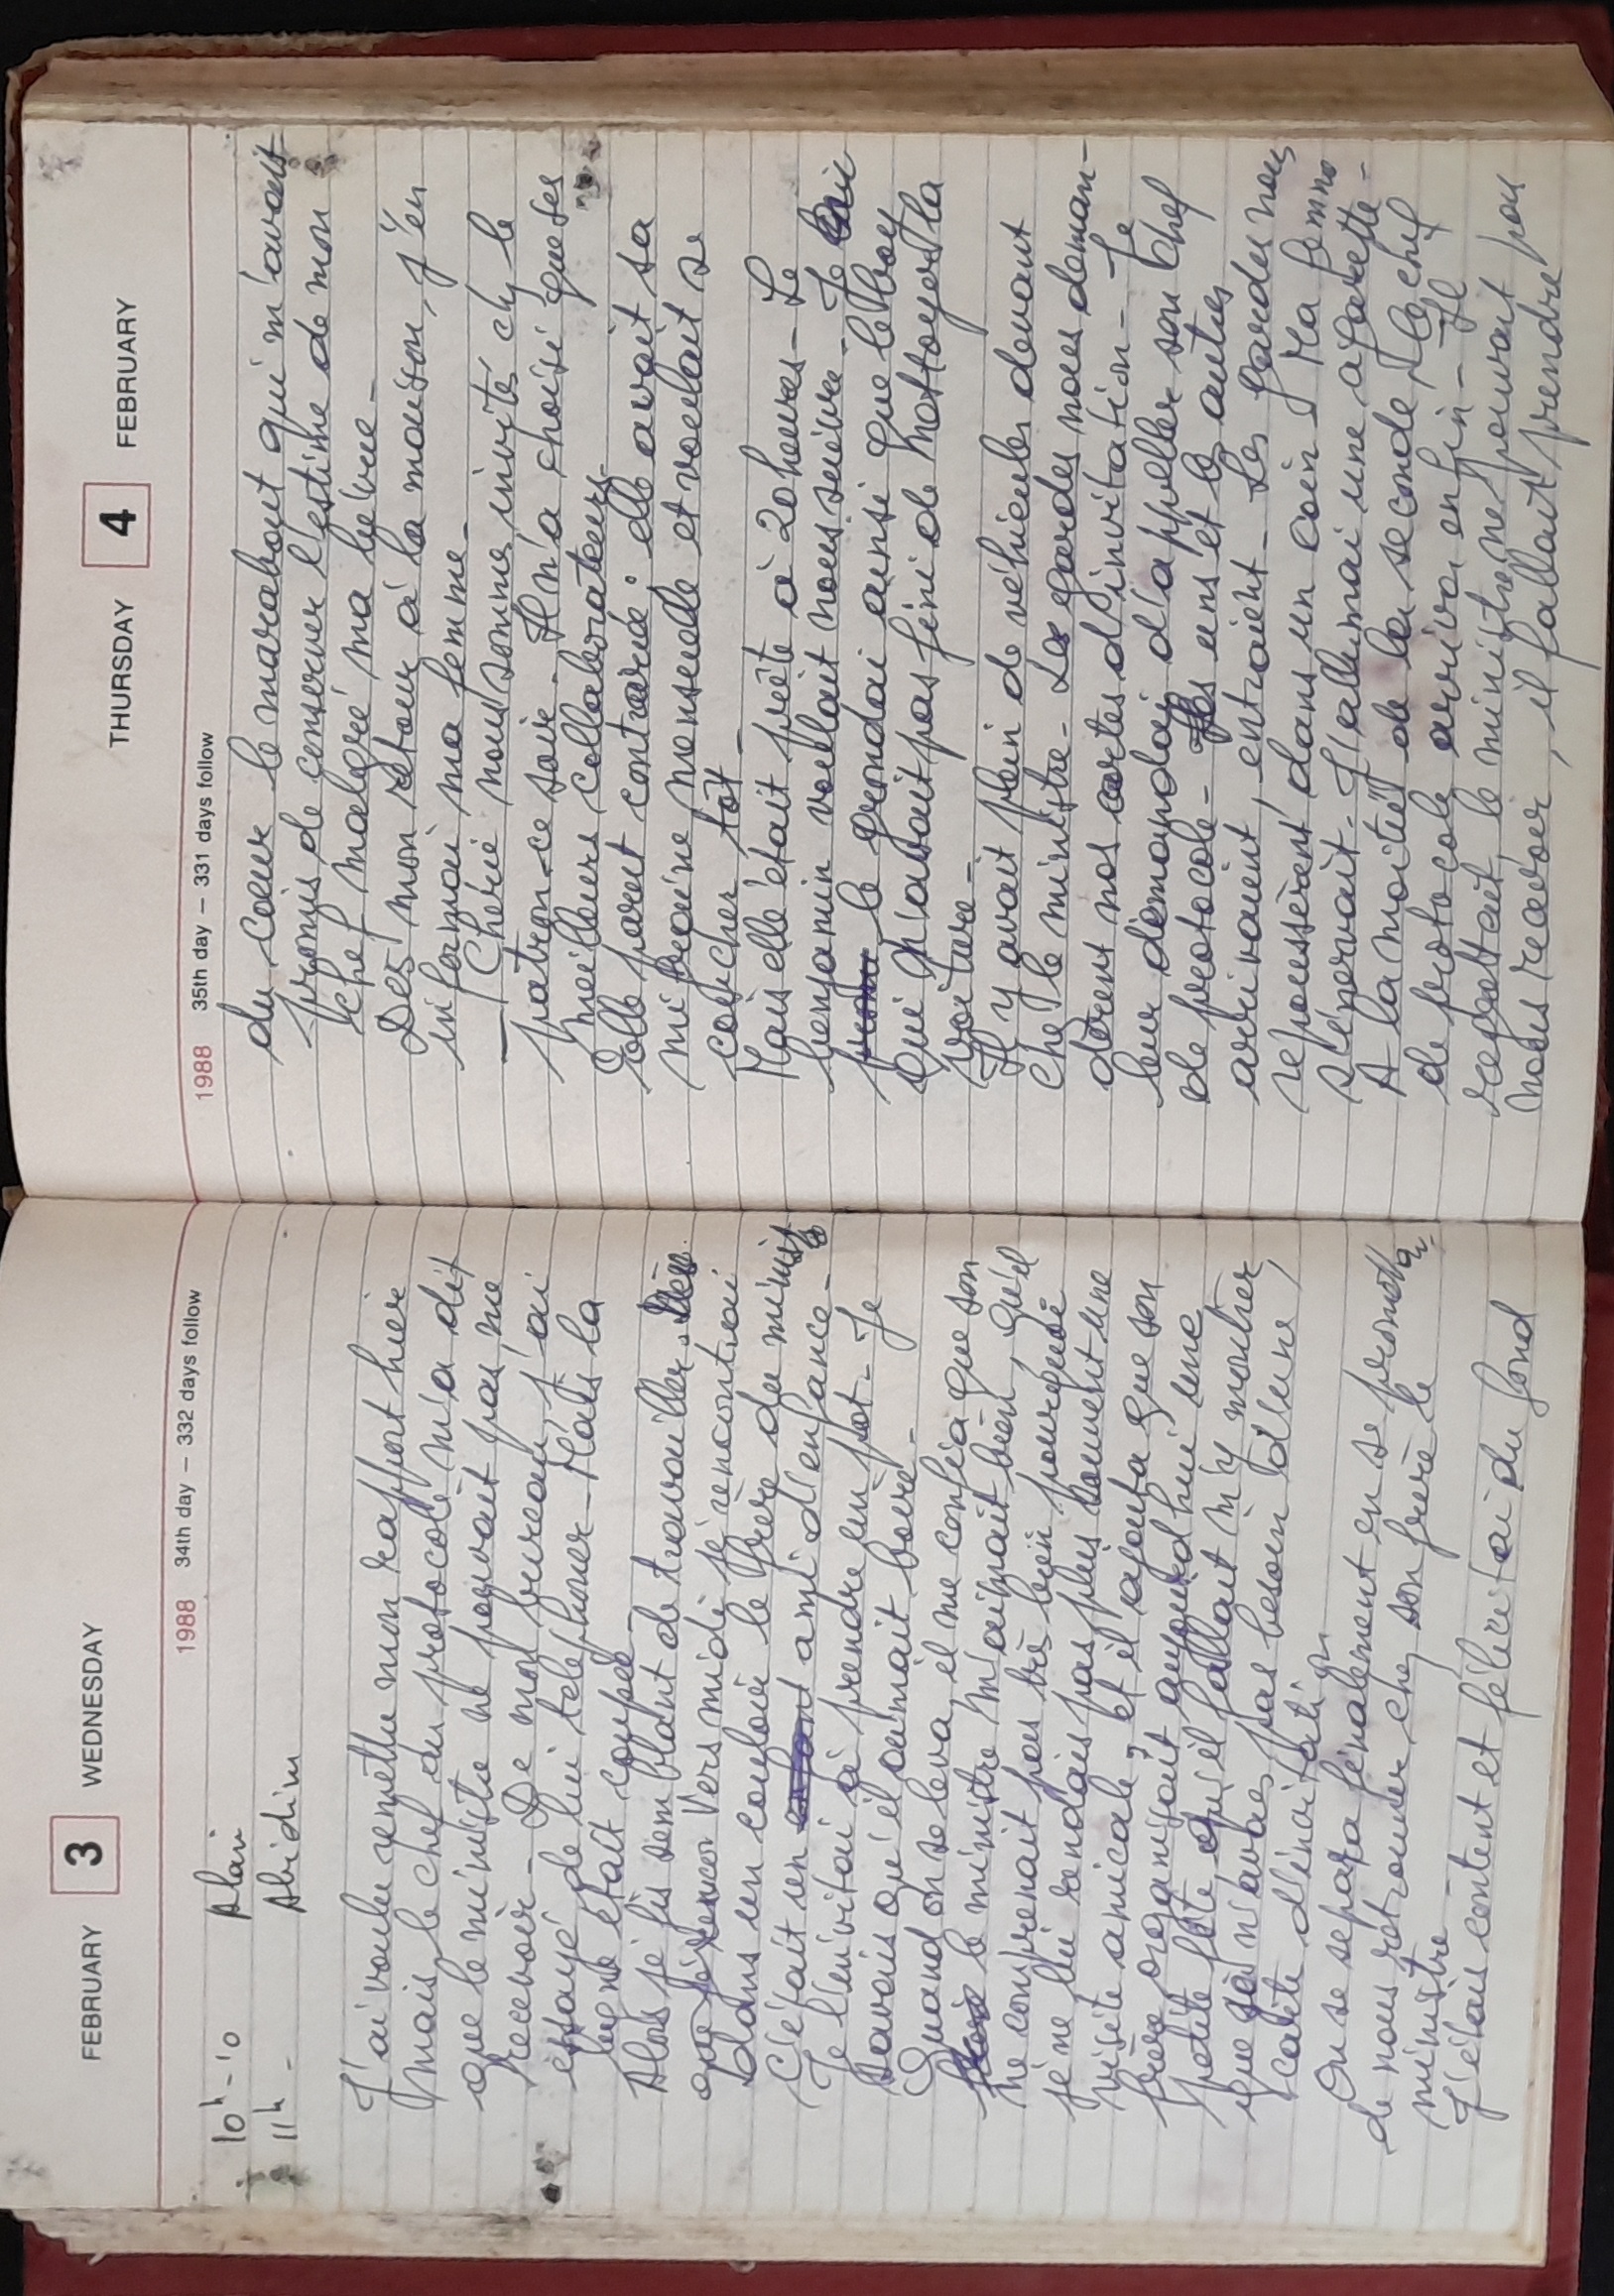 FEBRUARY 3 WEDNESDAY
1988 34th day – 332 days follow
10h - 10 Alani
11h - Abidim
J'ai voulu remettre mon rapport hier
mais le chef du protocole m'a dit
que le ministre ne pouvait pas me
recevoir - De mon bureau j'ai
essayé de lui téléphoner - Mais la
ligne était coupée -
Alors je fis semblant de travailler.
que Vers midi je rencontrai
Dans un couloir le frère du ministre
C'était un ami d'enfance -
Je l'invitai à prendre un pot - Je
savais qu'il aimait boire -
Quand on se leva, il me confia que son
le ministre m'aignait bien, qu'il
ne comprenait pas très bien pourquoi
je ne lui rendais pas plus souvent une
visite amicale, et il ajouta que son
frère organisait aujourd'hui une
petite fête et qu'il fallait m'y montrer,
que je n'avais pas besoin d'une
carte d'invitation
On se sépara finalement en se promettant
de nous retrouver chez son frère le
ministre -
J'étais content et félicitai du fond
THURSDAY 4 FEBRUARY
1988 35th day – 331 days follow
du coeur le marabout qui m'avait
promis de conserver l'estime de mon
chef malgré ma bévue -
Dès mon retour à la maison, j'en
informai ma femme -
— Chérie nous sommes invités chez le
patron ce soir - Il n'a choisi que ses
meilleurs collaborateurs -
Elle parut contrariée : elle avait sa
migraine mensuelle et voulait se
coucher tôt -
Mais elle était prête à 20 heures - Le
benjamin voulait nous suivre - Je
le grondai ainsi que le boy
qui n'avait pas fini de nettoyer la
voiture -
Il y avait plein de véhicules devant
chez le ministre - Les gardes nous deman-
dèrent nos cartes d'invitation - Je
leur demandai d'appeller son chef
de protocole - Les uns et les autres
arrivaient, entraient - Les gardes nous
repoussèrent dans un coin - Ma femme
s'énervait - J'allumai une cigarette -
A la moitié de la seconde, le chef
de protocole arriva enfin - Il
regrettait, le ministre ne pouvait
nous recevoir, il fallait prendre